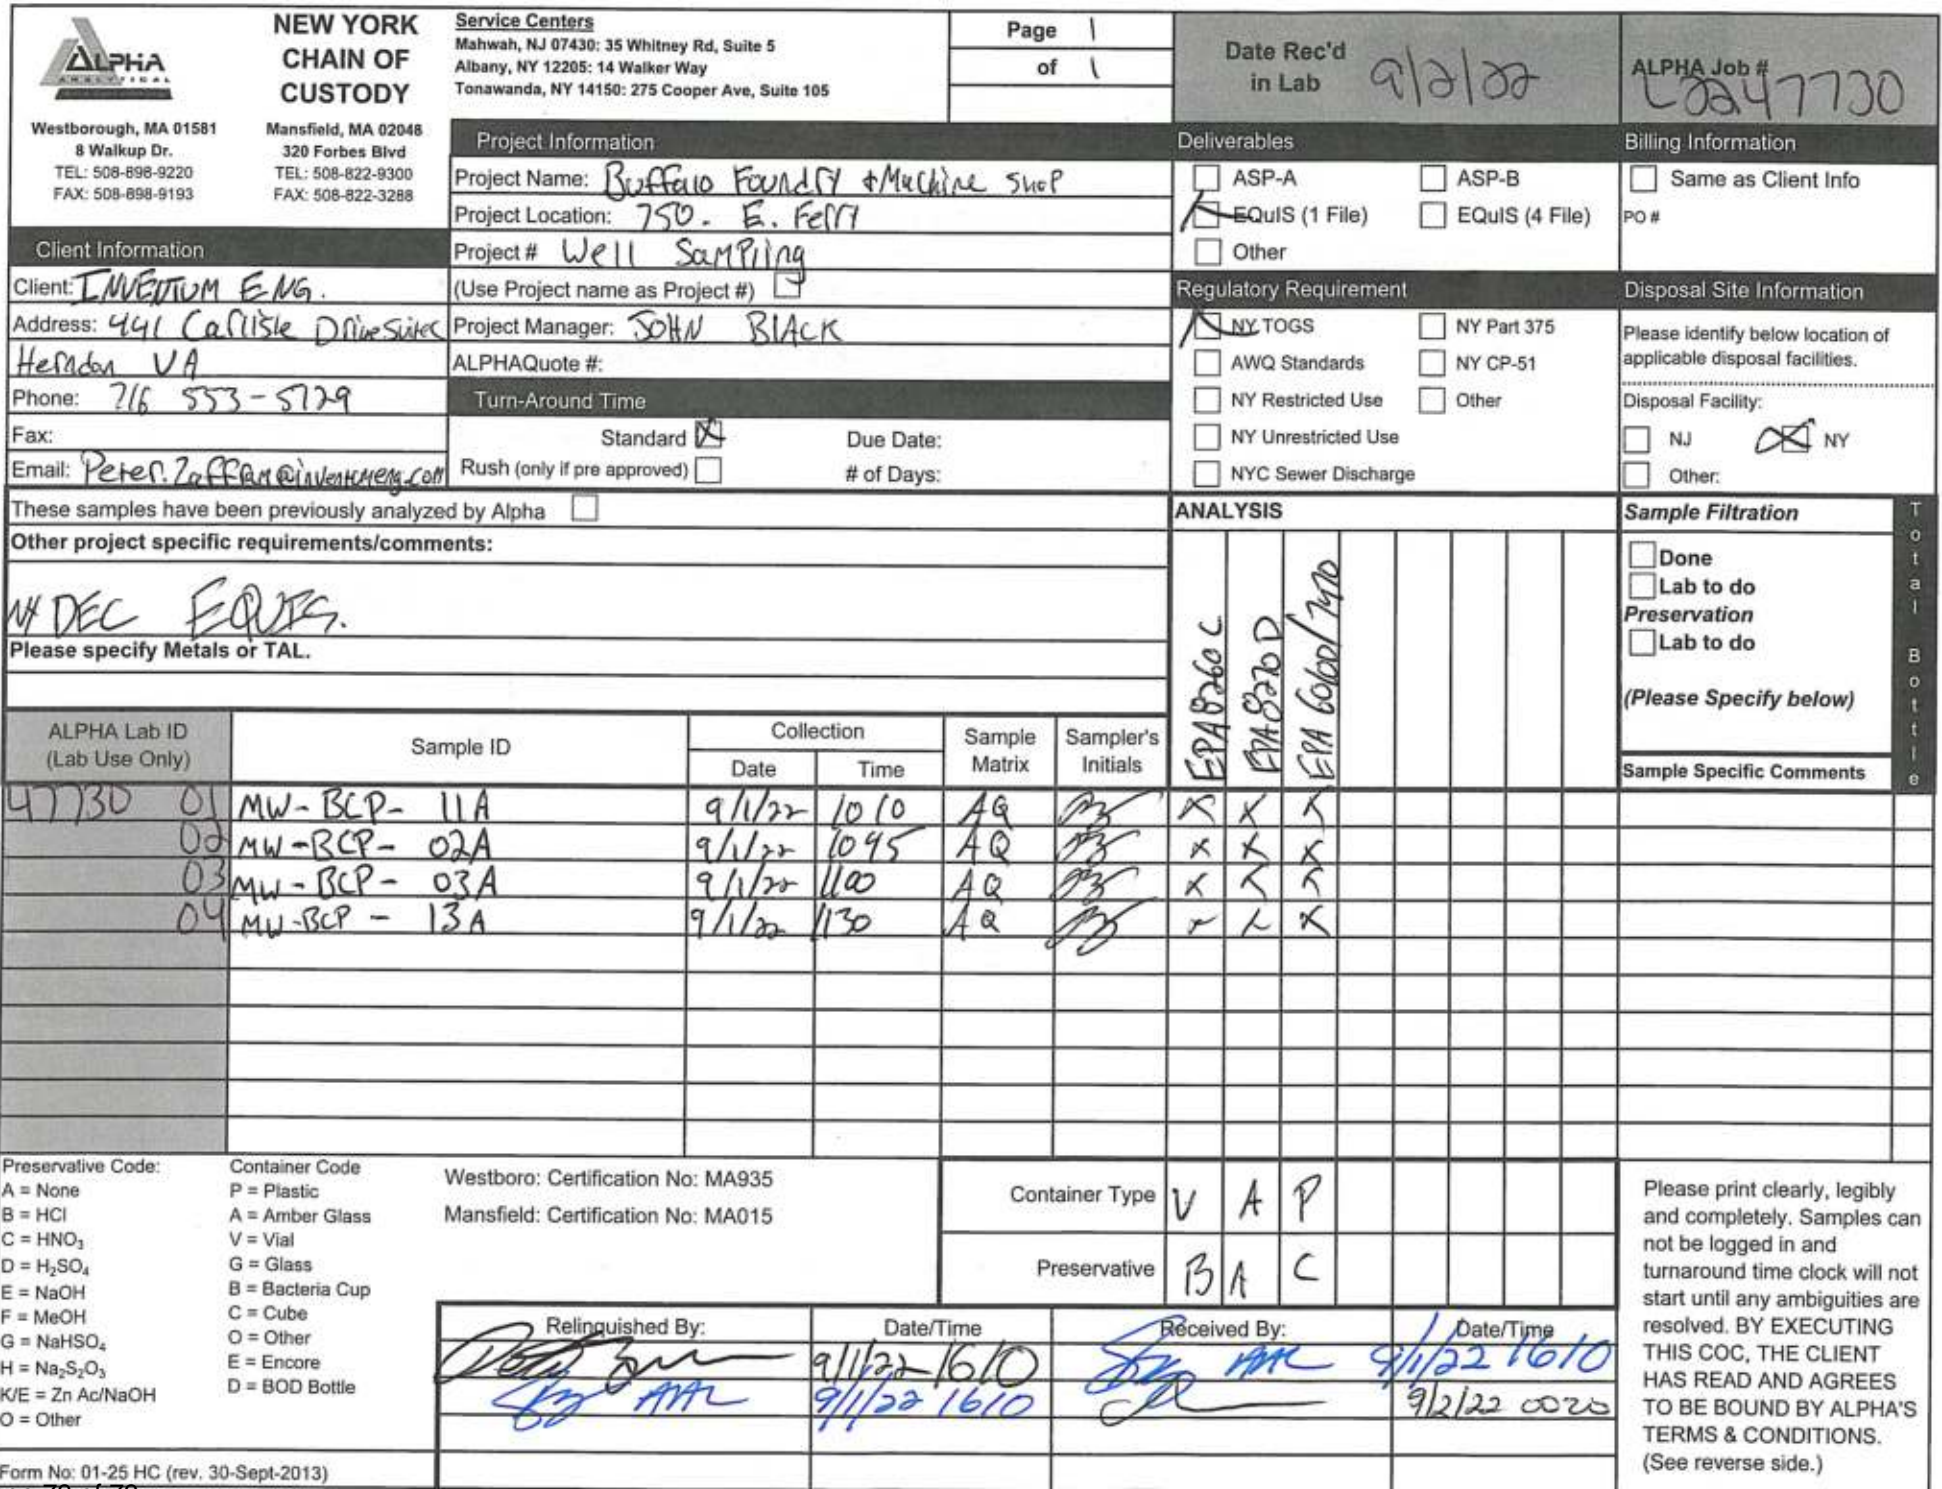 ALPHA
ANALYTICAL
NEW YORK
CHAIN OF
CUSTODY
Westborough, MA 01581
8 Walkup Dr.
TEL: 508-898-9220
FAX: 508-898-9193
Mansfield, MA 02048
320 Forbes Blvd
TEL: 508-822-9300
FAX: 508-822-3288
Service Centers
Mahwah, NJ 07430: 35 Whitney Rd, Suite 5
Albany, NY 12205: 14 Walker Way
Tonawanda, NY 14150: 275 Cooper Ave, Suite 105
Page 1
of 1
Date Rec'd
in Lab 9/2/22
ALPHA Job #
L2247730
Client Information
Client: INVENTUM ENG.
Address: 441 Carlisle Drive Suite C
Herndon VA
Phone: 716 553-5729
Fax:
Email: Peter.Zaffram@inventumeng.com
Project Information
Project Name: Buffalo Foundry + Machine Shop
Project Location: 750. E. Ferry
Project # Well Sampling
(Use Project name as Project #)
Project Manager: JOHN BLACK
ALPHAQuote #:
Turn-Around Time
Standard X Due Date:
Rush (only if pre approved) # of Days:
Deliverables
ASP-A ASP-B
EQuIS (1 File) EQuIS (4 File)
Other
Regulatory Requirement
NY TOGS NY Part 375
AWQ Standards NY CP-51
NY Restricted Use Other
NY Unrestricted Use
NYC Sewer Discharge
Billing Information
Same as Client Info
PO #
Disposal Site Information
Please identify below location of
applicable disposal facilities.
Disposal Facility:
NJ NY
Other:
These samples have been previously analyzed by Alpha
Other project specific requirements/comments:
NY DEC EQUIS.
Please specify Metals or TAL.
ANALYSIS
EPA 8260 C
EPA 8270 D
EPA 6060/7470
Sample Filtration
Done
Lab to do
Preservation
Lab to do
(Please Specify below)
Sample Specific Comments
Total Bottle
ALPHA Lab ID
(Lab Use Only)
Sample ID
Collection
Date Time
Sample
Matrix
Sampler's
Initials
47730 01 MW-BCP- 11A 9/1/22 1010 AQ X X X
02 MW-BCP- 02A 9/1/22 1045 AQ X X X
03 MW-BCP- 03A 9/1/22 1100 AQ X X X
04 MW-BCP - 13A 9/1/22 1130 AQ X X X
Preservative Code:
A = None
B = HCl
C = HNO₃
D = H₂SO₄
E = NaOH
F = MeOH
G = NaHSO₄
H = Na₂S₂O₃
K/E = Zn Ac/NaOH
O = Other
Container Code
P = Plastic
A = Amber Glass
V = Vial
G = Glass
B = Bacteria Cup
C = Cube
O = Other
E = Encore
D = BOD Bottle
Westboro: Certification No: MA935
Mansfield: Certification No: MA015
Container Type V A P
Preservative B A C
Relinquished By: Date/Time Received By: Date/Time
9/1/22 1610 AAL 9/1/22 1610
AAL 9/1/22 1610 9/2/22 0020
Please print clearly, legibly
and completely. Samples can
not be logged in and
turnaround time clock will not
start until any ambiguities are
resolved. BY EXECUTING
THIS COC, THE CLIENT
HAS READ AND AGREES
TO BE BOUND BY ALPHA'S
TERMS & CONDITIONS.
(See reverse side.)
Form No: 01-25 HC (rev. 30-Sept-2013)